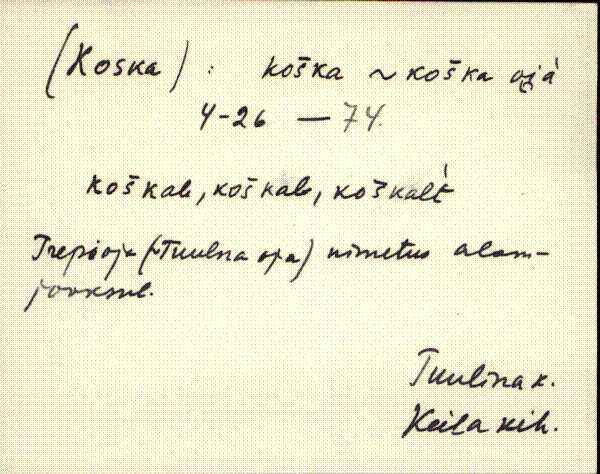 (Koska) : koška ~ koška oja
4-26 — 74.
koškalь, koškalь, koškalt
Trepioja (~Tuulna oja) nimetus alam-
jooksul.
Tuulina k.
Keila kih.